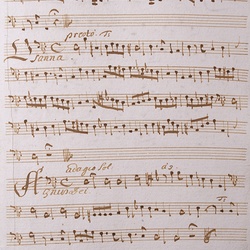 presto Ti
Osanna
Adagio Sol
Aghus Dei